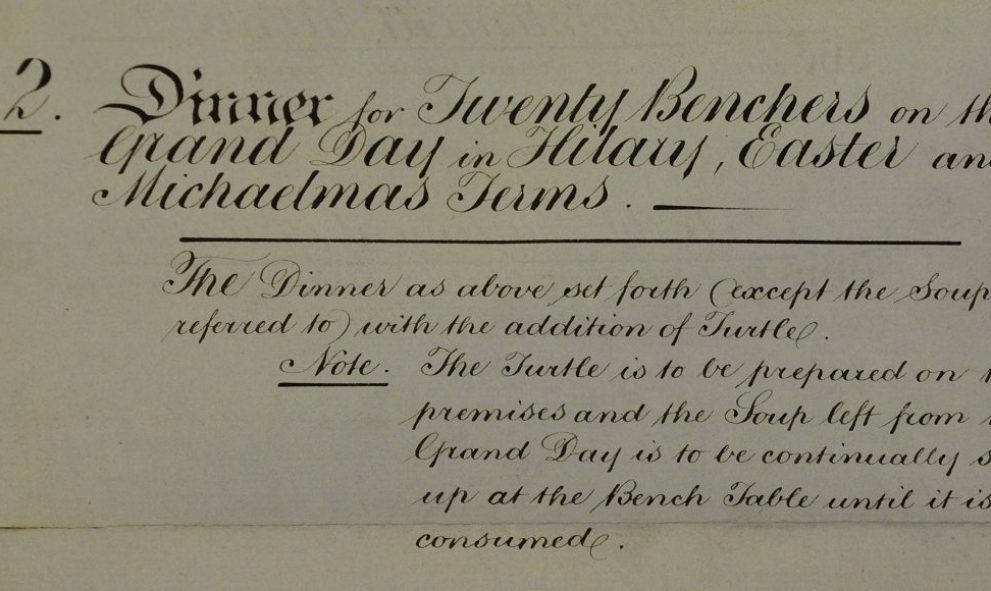 2. Dinner for Twenty Benchers on th
Grand Day in Hilary, Easter an
Michaelmas Terms.
The Dinner as above set forth (except the Soup
referred to) with the addition of Turtle.
Note. The Turtle is to be prepared on
premises and the Soup left from
Grand Day is to be continually s
up at the Bench Table until it is
consumed.